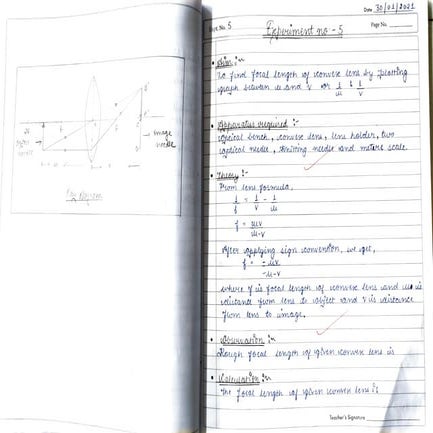 object
needle
image
needle
Ray diagram
Date 30/01/2021
Expt. No. 5
Page No.
Experiment no - 5
• Aim :-
To find focal length of convex lens by plotting
graph between u and v or 1/u & 1/v
• Apparatus required :-
optical bench, convex lens, lens holder, two
optical needle, knitting needle and metre scale.
• Theory :-
From lens formula,
1/f = 1/v - 1/u
f = uv/u-v
After applying sign convention, we get,
f = -uv/-u-v
where f is focal length of convex lens and u is
distance from lens to object and v is distance
from lens to image.
• Observation :-
Rough focal length of given convex lens is
• Calculation :-
The focal length of given convex lens is
Teacher's Signature